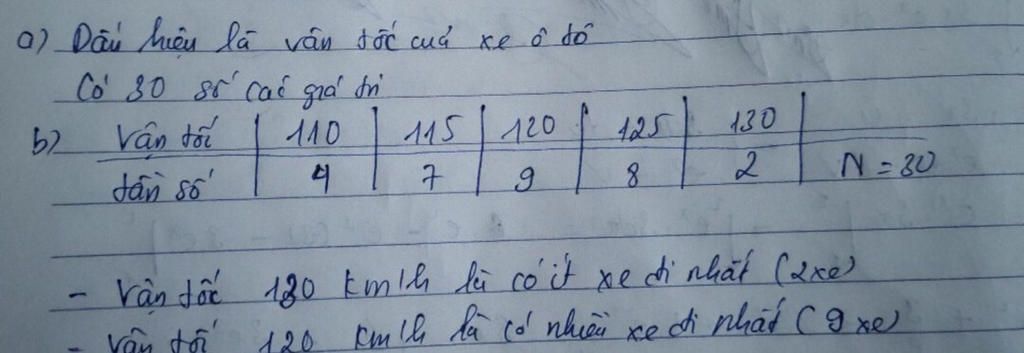 a) Dấu hiệu là vận tốc của xe ô tô
Có 30 số các giá trị
b) Vận tốc | 110 | 115 | 120 | 125 | 130 |
tần số | 4 | 7 | 9 | 8 | 2 | N = 30
- Vận tốc 130 km/h là có ít xe đi nhất (2 xe)
- Vận tốc 120 km/h là có nhiều xe đi nhất (9 xe)